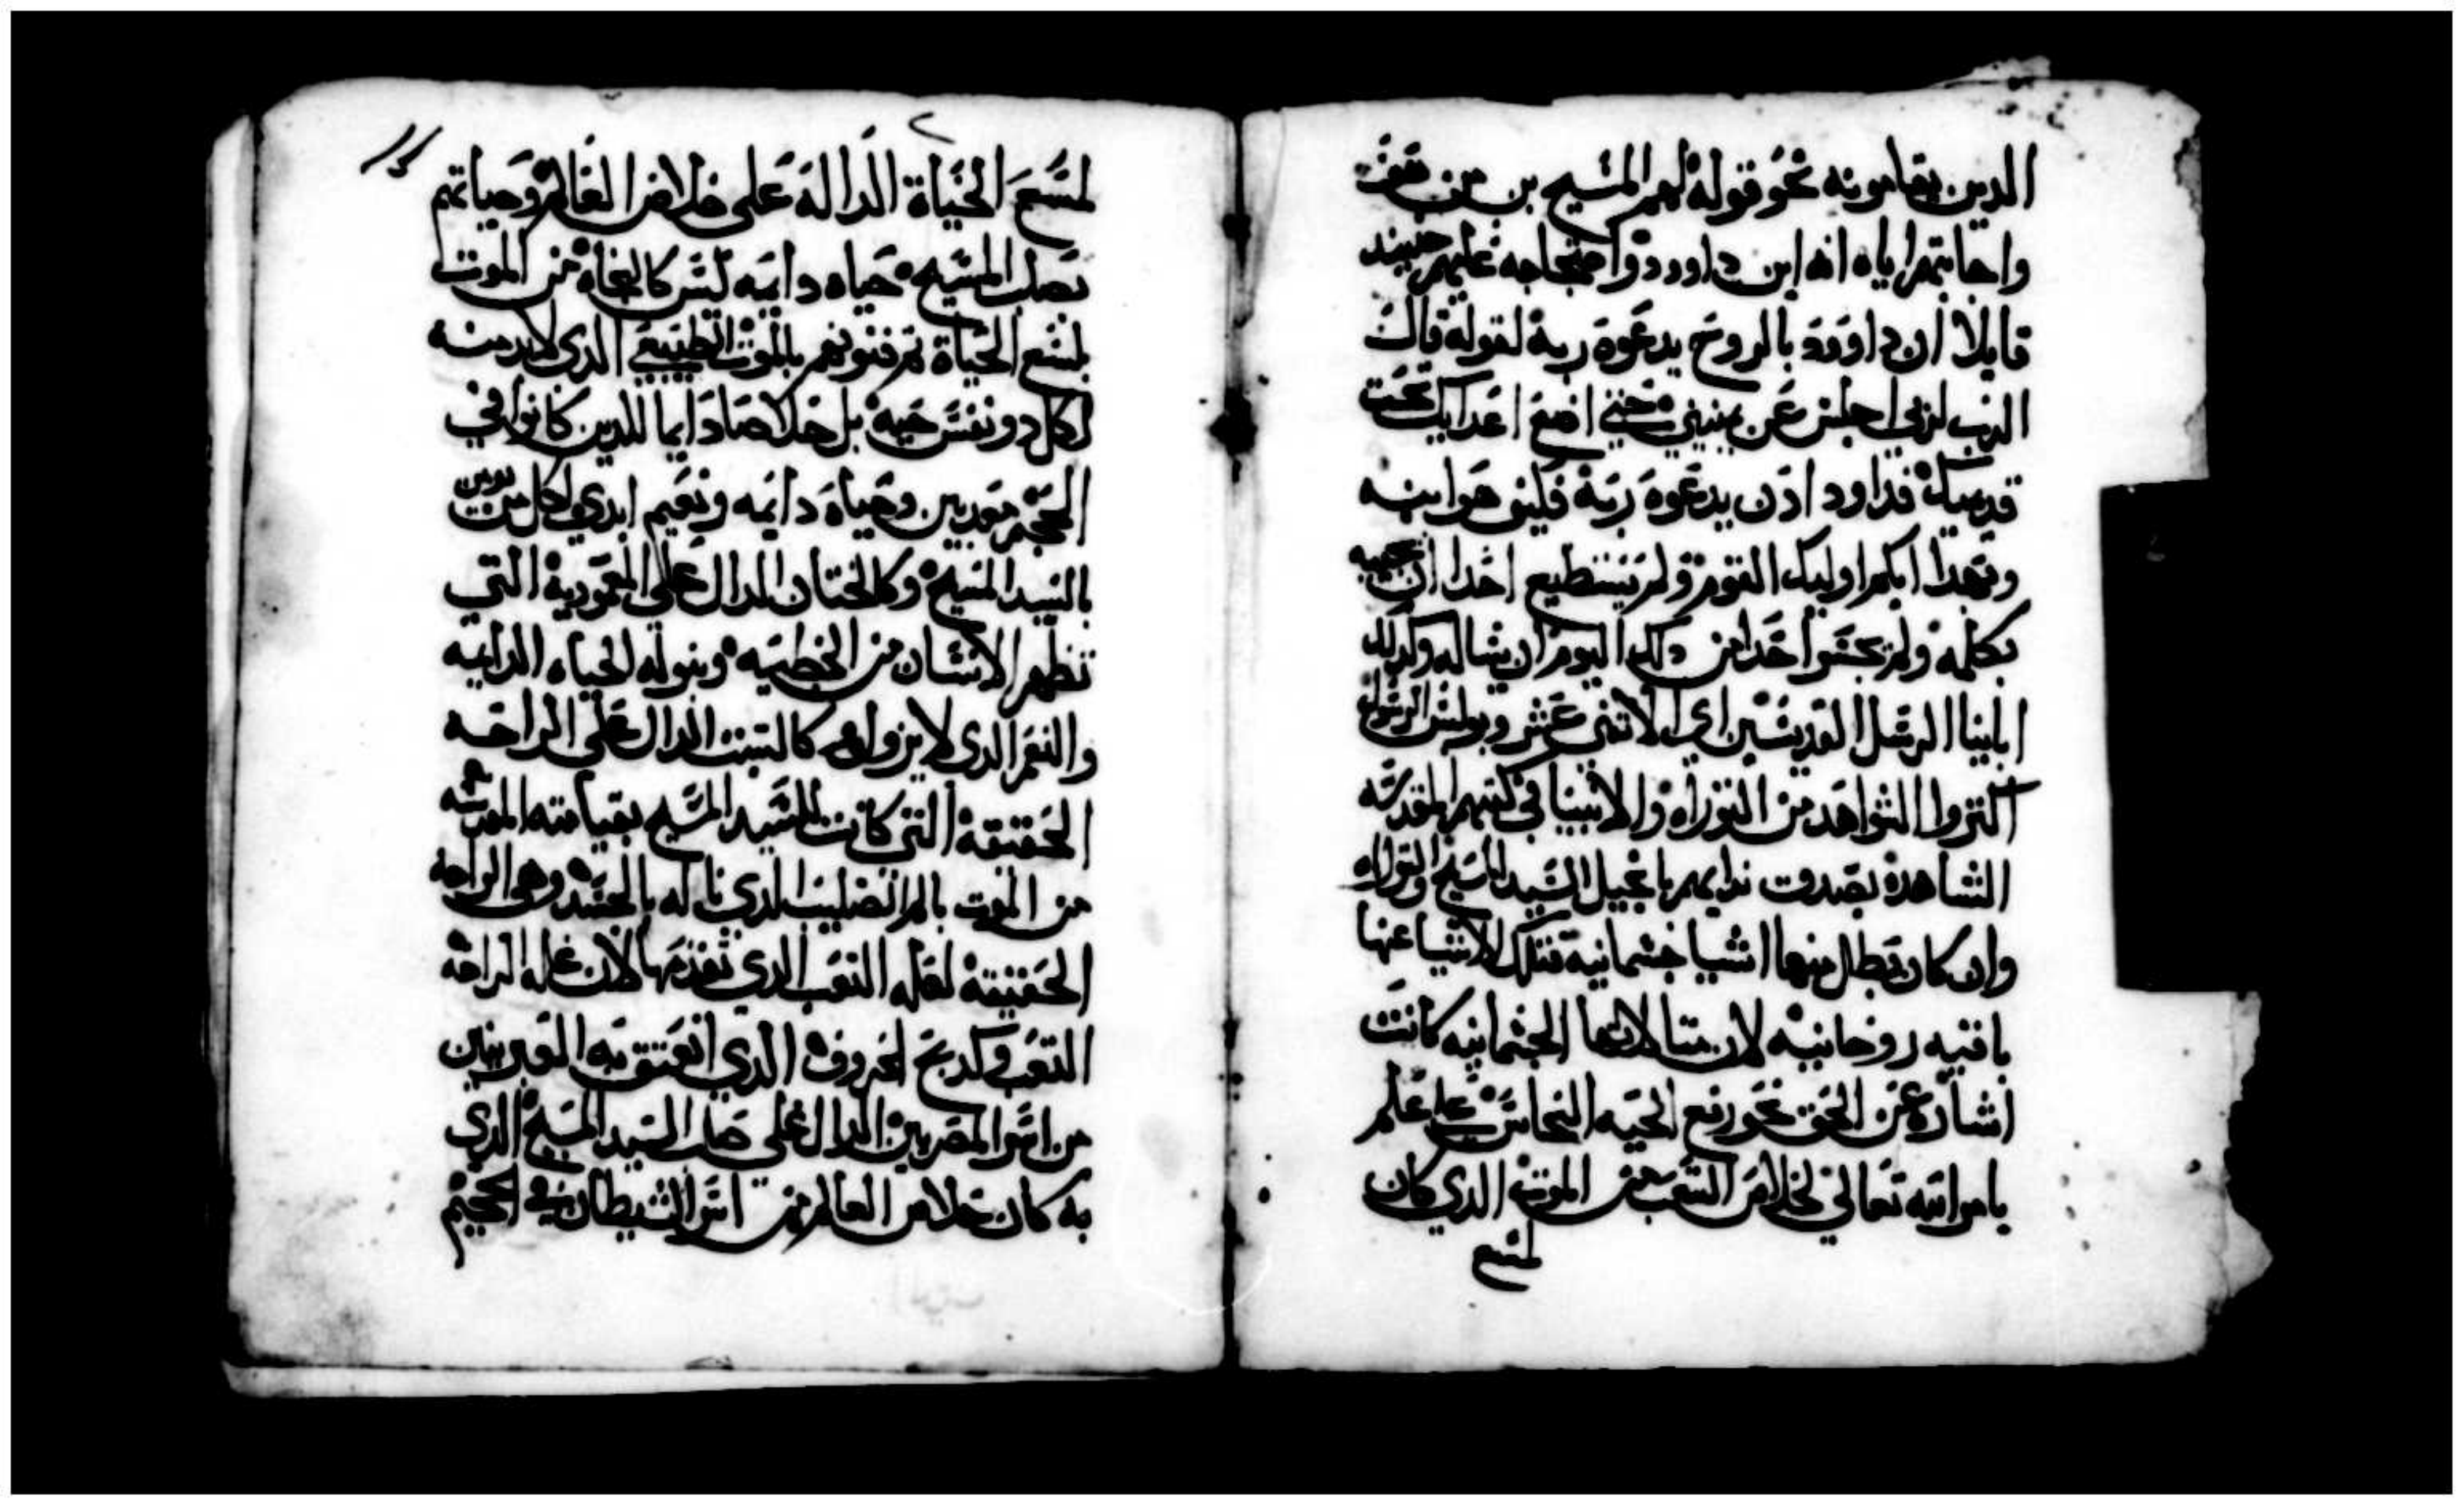 الدين يقاموينه نحو قوله لهم المسيح بن من هوت
واجابتهم اياه انه ابن داوود واحتجاجه عليهم حينيد
قايلا ان داوود بالروح يدعوه ربه لقوله قال
الرب لربي اجلس عن يميني حتي اضع اعدايك تحت
قدميك فداود ادن يدعوه ربه فكيف هو ابنه
وبهدا ابكم اوليك القوم ولم يستطيع احدا ان يجيبه
بكلمه ولم يجسر احدا من دلك اليوم ان يساله وكدلك
ابايينا الرسل القديسين اي الاتني عشر وبولس الرسول
اكتروا الشواهد من التوراه والانبيا في كتبهم المقدسه
الشاهدة بصدوق نداىهم بانجيل السيد المسيح والتوراه
وان كان تبطل منها اشيا جسمانية فتلك الاشيا عنها
باقيه روحانيه لان متالاتها الجسمانيه كانت
اشاره عن الحق نحو رفع الحيه النحاس علي علم
بامر الله تعالي لخلاص الشعب من الموت الدي كان
لسع
لسع الحياة الدالة على خلاص العالم وحياتهم
بصلب المسيح حياه دايمه ليس كالنجاه من الموت
بلسع الحياة تم فنونهم بالموت الطبيعي الدي لابد منه
لكل دو نفس حيه بل خلاصا دايما للدين كانوا في
الجحيم معدبين وحياة دايمه ونعيم ابدي لكل من يومن
بالسيد المسيح وكالختان الدال علي المعموديه التي
تطهر الانسان من الخطيه وبنوله الحياه الدايمه
والنعم الدي لا يزول كالسبت الدال علي الراحه
الحقيقة التي كانت للسيد المسيح بقيامته المقدسه
من الموت بالم الصليب الدي ناله بالجسد وهي الراحه
الحقيقة لقله التعب الدي تقدمها لان عله الراحه
التعب وكدبح الخروف الدي انعتق به العبرانيين
من اسر المصريين الدال علي صلب السيد المسيح الدي
به كان خلاص العالم من اسر الشيطان في الجحيم